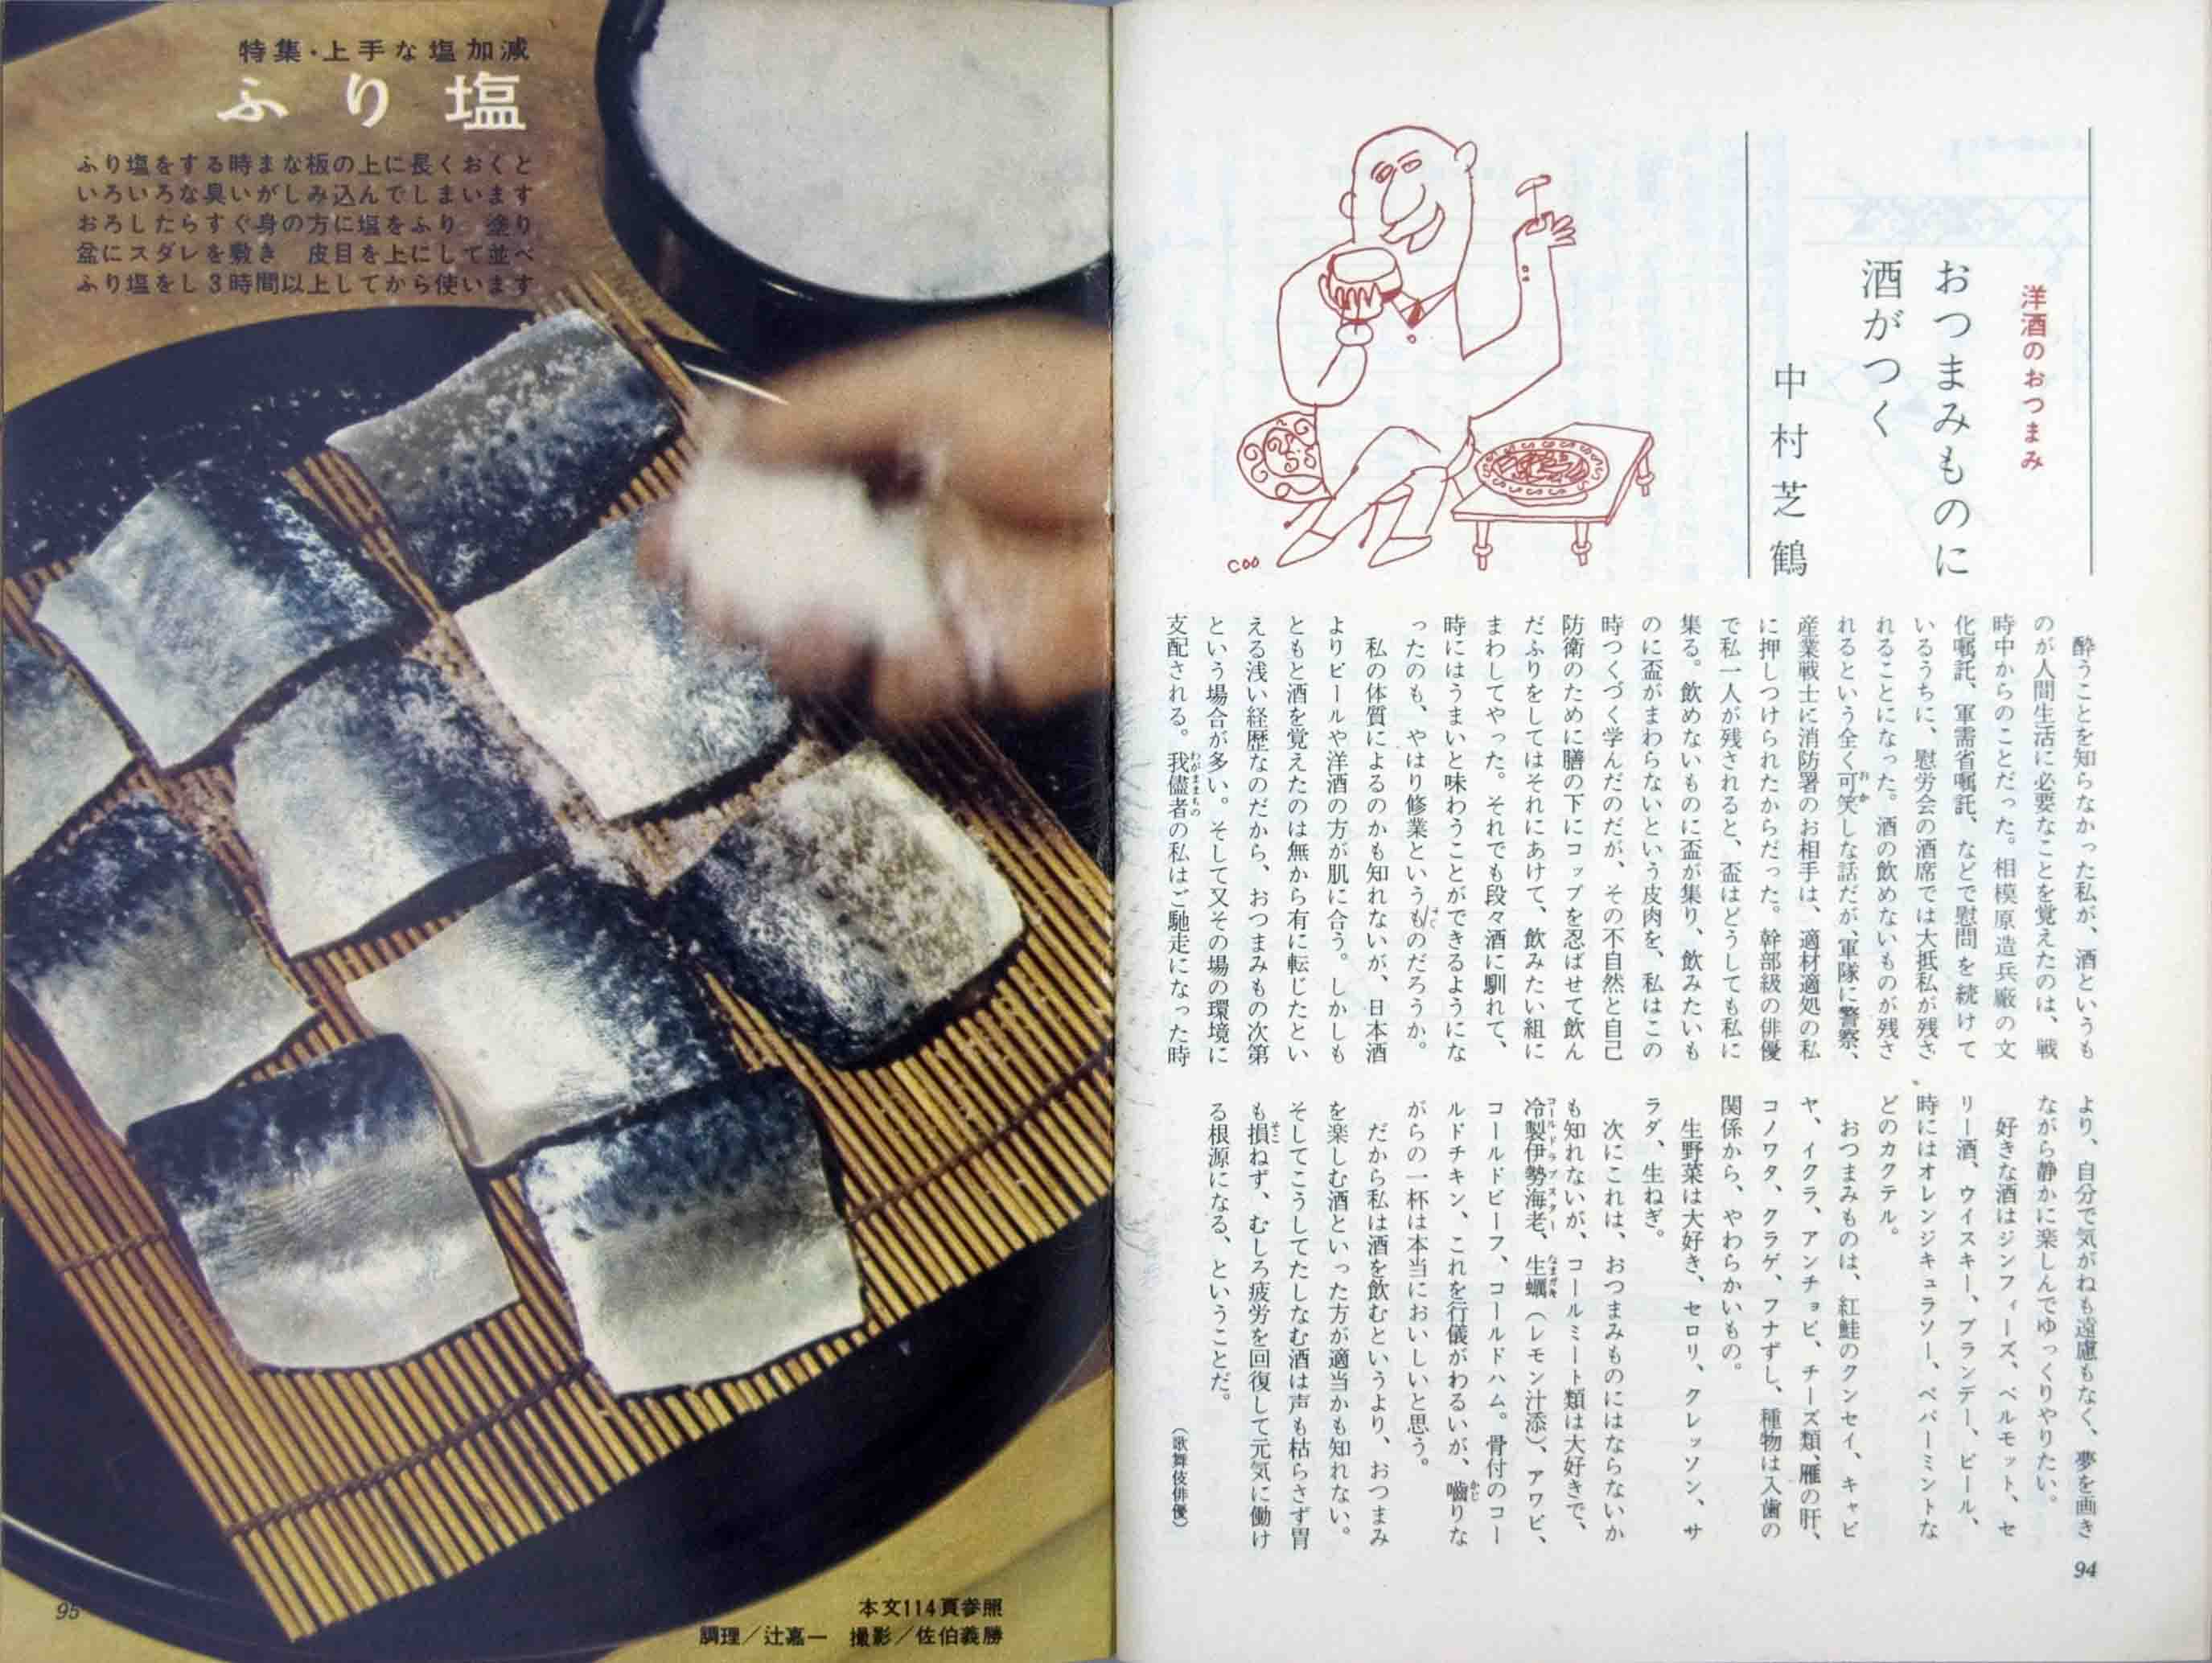 洋酒のおつまみ
おつまみものに
酒がつく
中村芝鶴
酔うことを知らなかった私が、酒というも
のが人間生活に必要なことを覚えたのは、戦
時中からのことだった。相模原造兵廠の文
化嘱託、軍需省嘱託、などで慰問を続けて
いるうちに、慰労会の酒席では大抵私が残さ
れることになった。酒の飲めないものが残さ
れるという全く可笑しな話だが、軍隊に警察、
産業戦士に消防署のお相手は、適材適処の私
に押しつけられたからだった。幹部級の俳優
で私一人が残されると、盃はどうしても私に
集る。飲めないものに盃が集り、飲みたいも
のに盃がまわらないという皮肉を、私はこの
時つくづく学んだのだが、その不自然と自己
防衛のために膳の下にコップを忍ばせて飲ん
だふりをしてはそれにあけて、飲みたい組に
まわしてやった。それでも段々酒に馴れて、
時にはうまいと味わうことができるようにな
ったのも、やはり修業というものだろうか。
私の体質によるのかも知れないが、日本酒
よりビールや洋酒の方が肌に合う。しかしも
ともと酒を覚えたのは無から有に転じたとい
える浅い経歴なのだから、おつまみもの次第
という場合が多い。そして又その場の環境に
支配される。我儘者の私はご馳走になった時
より、自分で気がねも遠慮もなく、夢を画き
ながら静かに楽しんでゆっくりやりたい。
好きな酒はジンフィーズ、ベルモット、セ
リー酒、ウイスキー、ブランデー、ビール、
時にはオレンジキュラソー、ペパーミントな
どのカクテル。
おつまみものは、紅鮭のクンセイ、キャビ
ヤ、イクラ、アンチョビ、チーズ類、雁の肝、
コノワタ、クラゲ、フナずし、種物は入歯の
関係から、やわらかいもの。
生野菜は大好き、セロリ、クレッソン、サ
ラダ、生ねぎ。
次にこれは、おつまみものにはならないか
も知れないが、コールミート類は大好きで、
冷製伊勢海老、生蠣（レモン汁添）、アワビ、
コールドビーフ、コールドハム。骨付のコー
ルドチキン、これを行儀がわるいが、嚙りな
がらの一杯は本当においしいと思う。
だから私は酒を飲むというより、おつまみ
を楽しむ酒といった方が適当かも知れない。
そしてこうしてたしなむ酒は声も枯らさず胃
も損ねず、むしろ疲労を回復して元気に働け
る根源になる、ということだ。
（歌舞伎俳優）
COO
94
特集・上手な塩加減
ふり塩
ふり塩をする時まな板の上に長くおくと
いろいろな臭いがしみ込んでしまいます
おろしたらすぐ身の方に塩をふり　塗り
盆にスダレを敷き　皮目を上にして並べ
ふり塩をし3時間以上してから使います
本文114頁参照
調理／辻嘉一　撮影／佐伯義勝
95